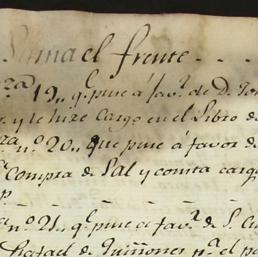 Suma el frente - - .
za 19,, q.e puse á fav.r de D. Jos
y le hize cargo en el Libro de
za n.o 20,, que puse á favor de
Compra de Sal y consta carg
p
a n.o 21,, q.e puse a fav.r de D.
Rafael de Quiñones n.r el p